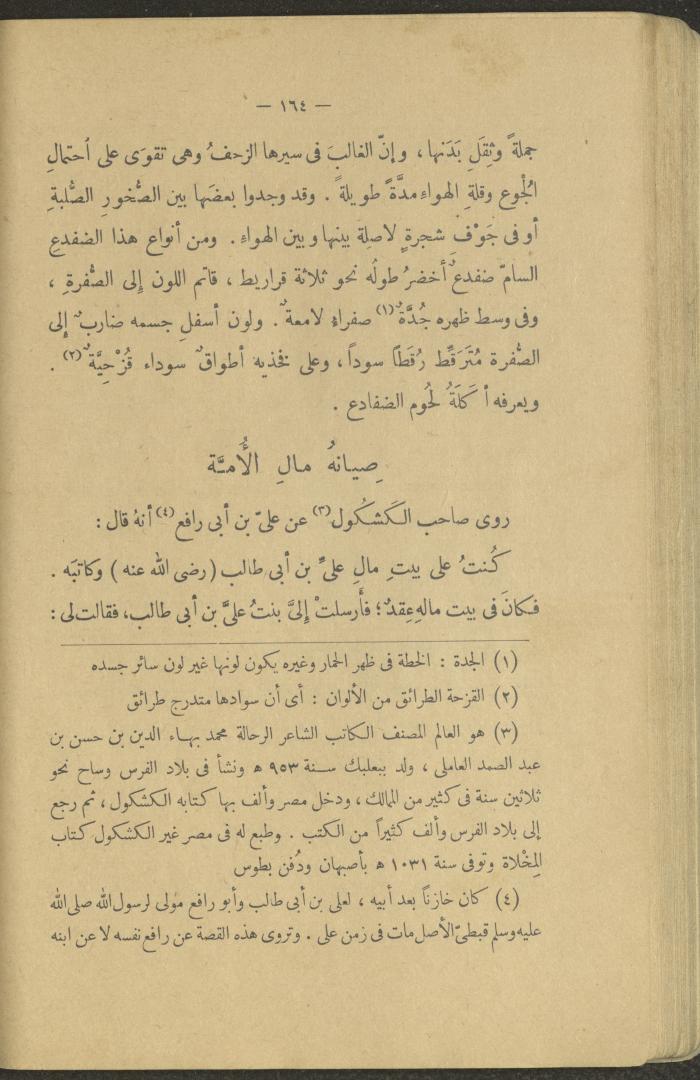 — ١٦٤ —
جملةً وثِقَلِ بَدَنها ، وإنّ الغالبَ فى سيرها الزحفُ وهى تقوَى على اُحتمالِ
الجُوع وقلةِ الهواءِ مدَّةً طويلةً . وقد وجدوا بعضَها بين الصُّخورِ الصُّلبةِ
أو فى جَوْف شجرةٍ لاصلة بينها وبين الهواءِ . ومن أنواع هذا الضفدعِ
السامّ ضفدعٌ أخضرُ طولُه نحو ثلاثة قراريط ، قاتم اللون إلى الصُّفرةِ ،
وفى وسط ظهره جُدَّةٌ(١) صفراء لامعةٌ . ولون أسفلِ جسمه ضاربٌ إلى
الصُّفرة مُتَرَقِّط رُقَطاً سوداً ، وعلى فخذيه أطواقٌ سوداء قُزْحِيَّةٌ(٢) .
ويعرفه أَكَلَةُ لحُوم الضفادع .
صِيانهُ مالِ الأُمَّة
روى صاحب الكَشكُول(٣) عن علىّ بن أبى رافع(٤) أنهُ قال :
كُنتُ على بيتِ مالِ علىِّ بن أبى طالب (رضى الله عنه) وكاتبَه .
فكانَ فى بيت مالهِ عِقدٌ ؛ فأَرسلتْ إِلىَّ بنتُ علىَّ بن أبى طالب، فقالت لى :
(١) الجدة : الخطة فى ظهر الحمار وغيره يكون لونها غير لون سائر جسده
(٢) القزحة الطرائق من الألوان : أى أن سوادها متدرج طرائق
(٣) هو العالم المصنف الكاتب الشاعر الرحالة محمد بهاء الدين بن حسن بن
عبد الصمد العاملى ، ولد ببعلبك سنة ٩٥٣ ه ونشأ فى بلاد الفرس وساح نحو
ثلاثين سنة فى كثير من الممالك ، ودخل مصر وألف بها كتابه الكشكول ، ثم رجع
إلى بلاد الفرس وألف كثيراً من الكتب . وطبع له فى مصر غير الكشكول كتاب
المِخْلاة وتوفى سنة ١٠٣١ ه بأصبهان ودُفن بطوس
(٤) كان خازناً بعد أبيه ، لعلى بن أبى طالب وأبو رافع مولى لرسول الله صلى الله
عليه وسلم قبطىّ الأصل مات فى زمن على . وتروى هذه القصة عن رافع نفسه لا عن ابنه